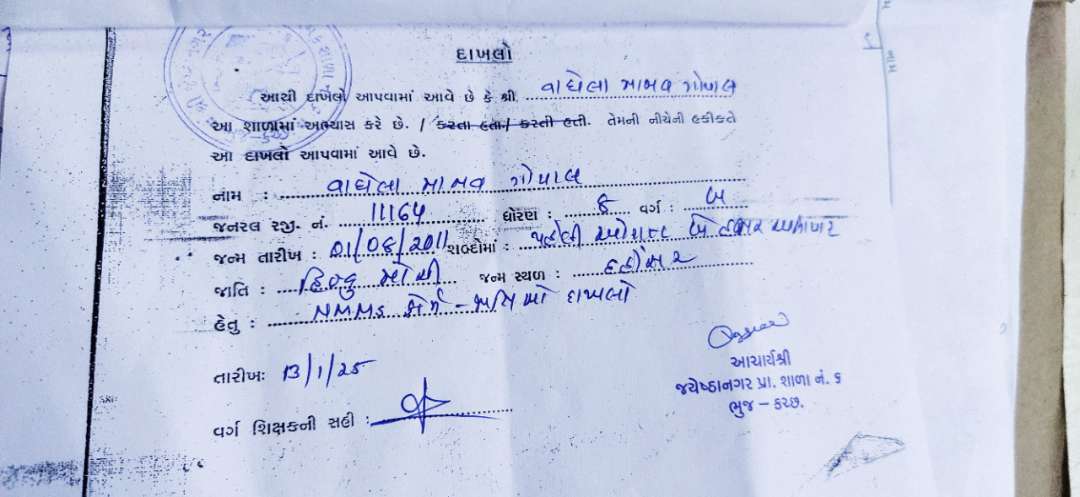 દાખલો
આથી દાખલો આપવામાં આવે છે કે શ્રી વાઘેલા માનવ ગોપાલ
આ શાળામાં અભ્યાસ કરે છે. / કરતા હતા / કરતી હતી. તેમની નીચેની હકીકતે
આ દાખલો આપવામાં આવે છે.
નામ : વાઘેલા માનવ ગોપાલ
જનરલ રજી. નં. 11164 ધોરણ : 8 વર્ગ : બ
જન્મ તારીખ : 01/08/2011 શબ્દોમાં : પહેલી ઓગસ્ટ બે હજાર અગિયાર
જાતિ : હિન્દુ મોચી જન્મ સ્થળ :
હેતુ : NMMS ફોર્મ - જાતિ નો દાખલો
તારીખઃ 13/1/25
વર્ગ શિક્ષકની સહી :
આચાર્યશ્રી
જયેષ્ઠાનગર પ્રા. શાળા નં. ૬
ભુજ – કચ્છ.